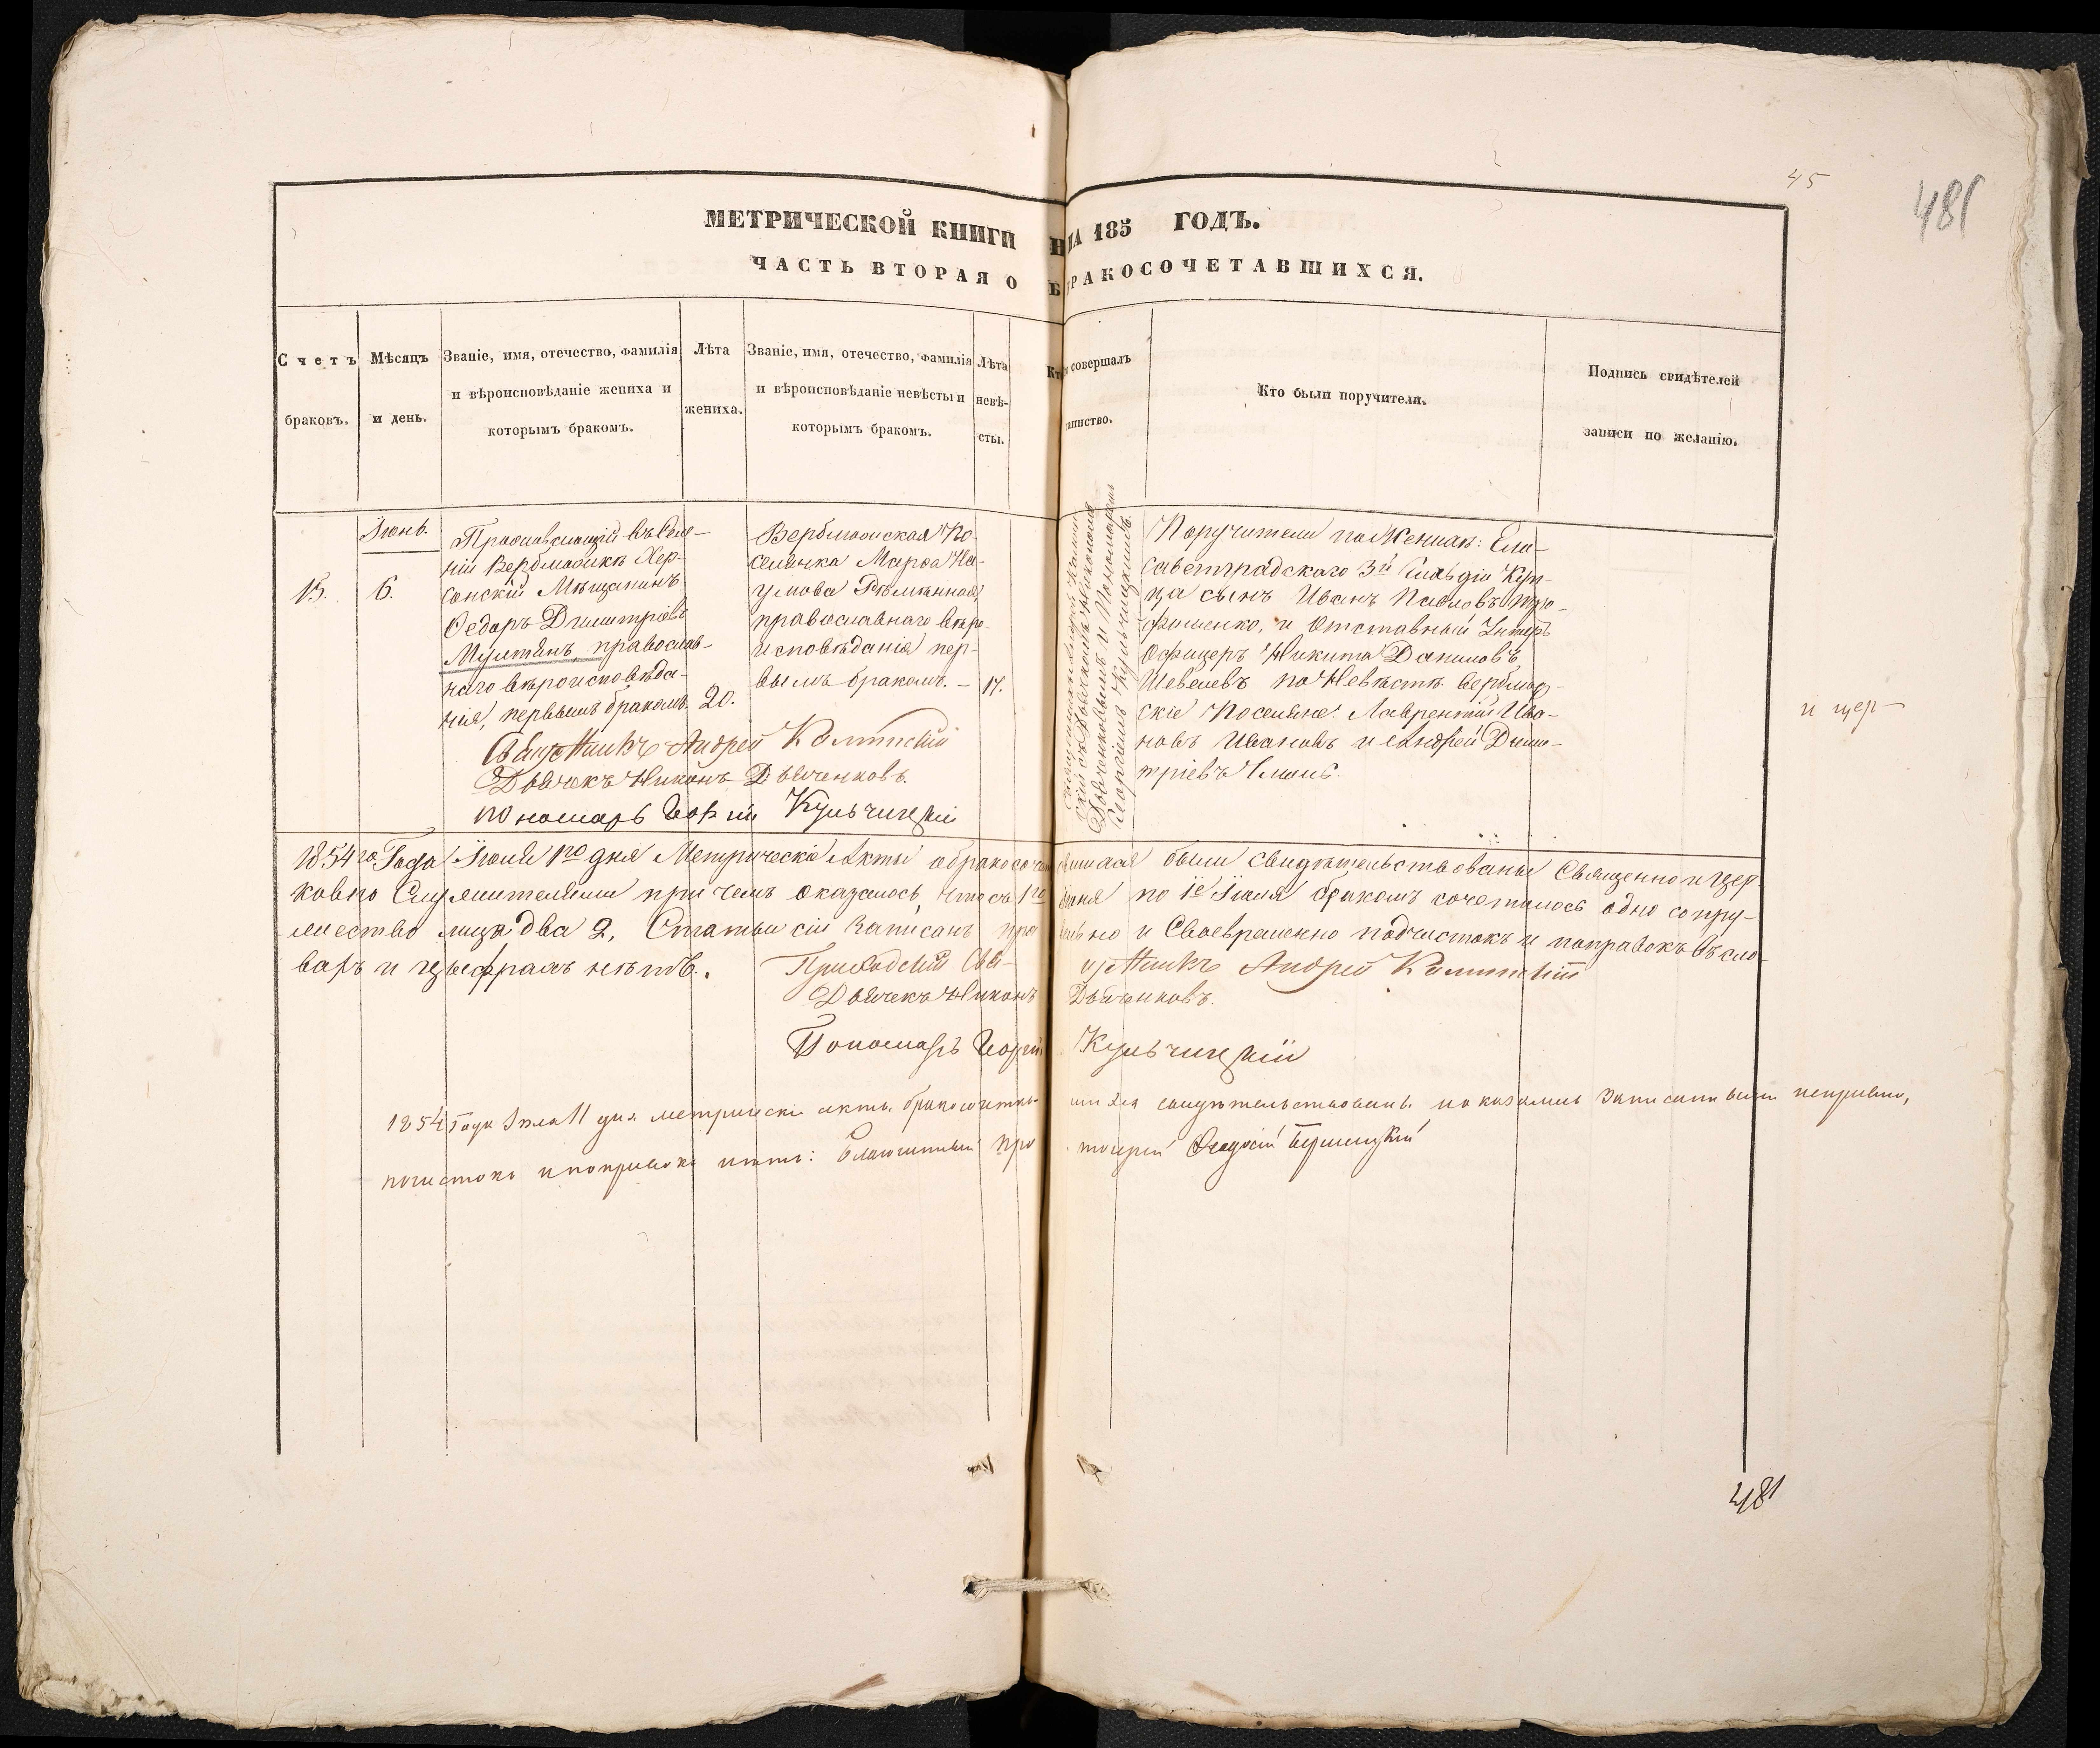 45
481
МЕТРИЧЕСКОЙ КНИГИ НА 185 ГОДЪ.
ЧАСТЬ ВТОРАЯ О БРАКОСОЧЕТАВШИХСЯ.
Счетъ браковъ.
Мѣсяцъ и день.
Званіе, имя, отечество, фамилія
и вѣроисповѣданіе жениха и
которымъ бракомъ.
Лѣта
жениха.
Званіе, имя, отечество, фамилія
и вѣроисповѣданіе невѣсты и
которымъ бракомъ.
Лѣта
невѣ-
сты.
Кто совершалъ
таинство.
Кто были поручители.
Подпись свидѣтелей
записи по желанію.
15.
Іюнь.
6.
въ Селе-
ніи Вербмюжкѣ Хер-
сонскій Мѣщанинъ
Ѳедоръ Димитріевъ
православ-
наго вѣроисповѣда-
нія, первымъ бракомъ.
20.
По-
селянка Марѳа На-
умова
православнаго вѣро-
исповѣданія пер-
вымъ бракомъ. –
17.
Поручители по Женихѣ: Ели-
саветградскаго 3й Гильдіи Куп-
ца сынъ Иванъ Павловъ Тро-
фименко, и Отставный Унтеръ
Офицеръ Никита Даниловъ
Шевелевъ по Невѣстѣ
скіе Поселяне: Лаврентій Ива-
новъ Ивановъ и Андрей Дими-
тріевъ
Дьячекъ Никонъ Дьяченковъ.
Пономарь Георгій Кульчицкій
Андрей
Дьяченковымъ и Пономаремъ
Георгіемъ Кульчицкимъ.
и цер-
1854го Года Іюля 1го дня Метрическіе Акты о бракосочетавшихся были свидѣтельствованы Священно и Цер-
ковно Служителями при чемъ оказалось, что съ 1го Іюня по 1е Іюля бракомъ сочеталось одно супру-
жество лицъ два 2, Статьи сіи записаны правильно и Своевременно подчистокъ и поправокъ въ сло-
вахъ и цыфрахъ нѣтъ.
Приходскій Священникъ Андрей
Дьячекъ Никонъ Дьяченковъ.
Пономарь Георгій Кульчицкій
1854 Года Іюля 11 дня метрическіе акты бракосочетавшихся свидѣтельствованы и оказались записанными исправно,
почистокъ и поправокъ нѣтъ: Благочинный протоіерей Ѳеодосій
481